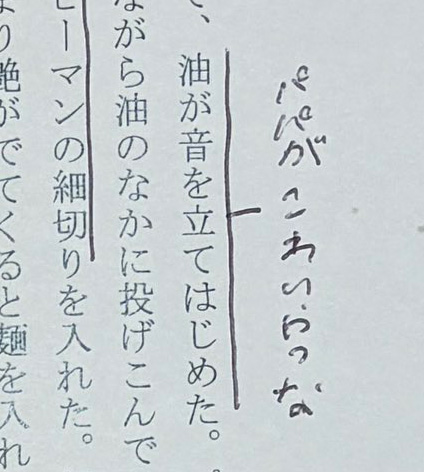 パパがこわい
、油が音を立てはじめた。
がら油のなかに投げこんで
ーマンの細切りを入れた。
り艶がでてくると麺を入れ